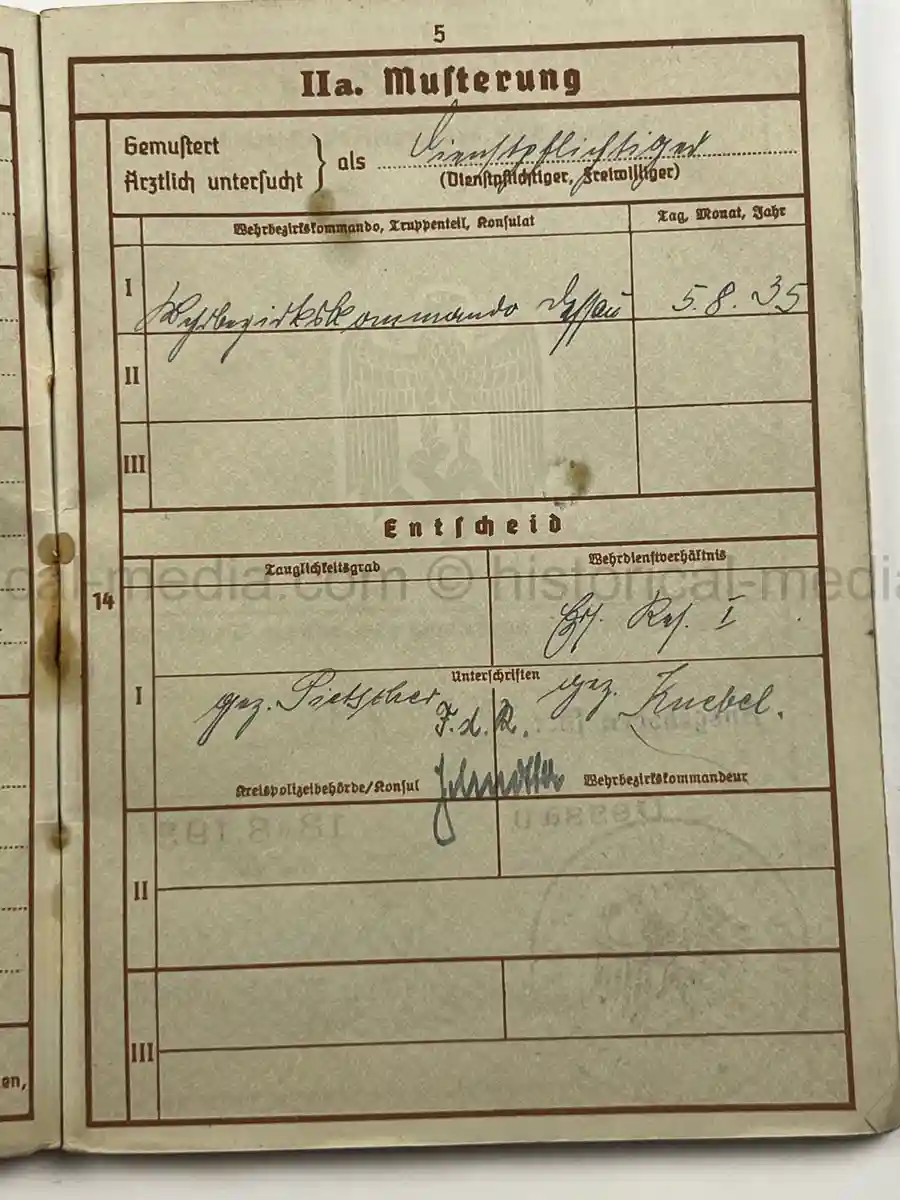 5
IIa. Musterung
Gemustert
Ärztlich untersucht } als Dienstpflichtiger
(Dienstpflichtiger, Freiwilliger)
Wehrbezirkskommando, Truppenteil, Konsulat
Tag, Monat, Jahr
I Wehrbezirkskommando Dessau 5.8.35
II
III
Entscheid
Tauglichkeitsgrad Wehrdienstverhältnis
14
Ers. Res. I
Unterschriften
I gez. gez. Knebel.
F.d.R.
Kreispolizeibehörde/Konsul Wehrbezirkskommandeur
Dessau
II
III
en,
cal-media.com © historical-media